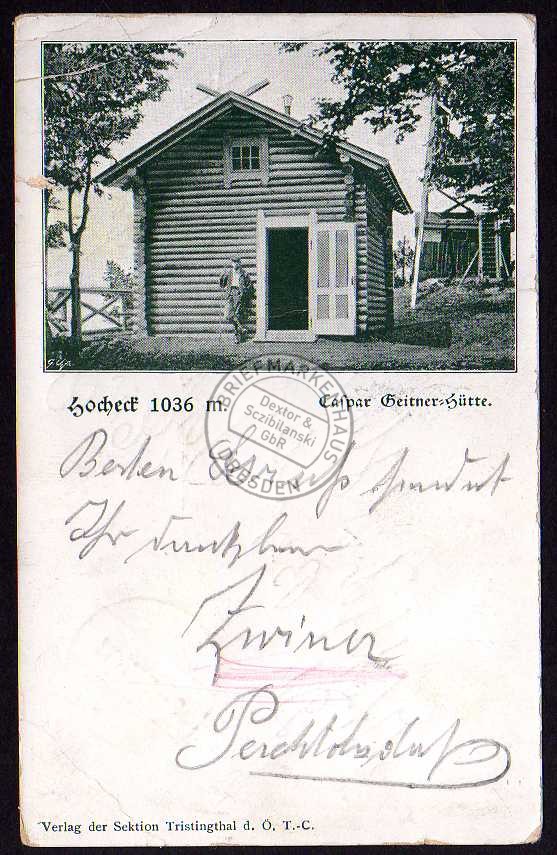 Hocheck 1036 m.
Caspar Geitner-Hütte.
BRIEFMARKENHAUS
Dexter &
Sczibilanski
GbR
DRESDEN
Besten Gruß sendet
Ihr dankbarer
Zwiner
Verlag der Sektion Tristingthal d. Ö. T.-C.